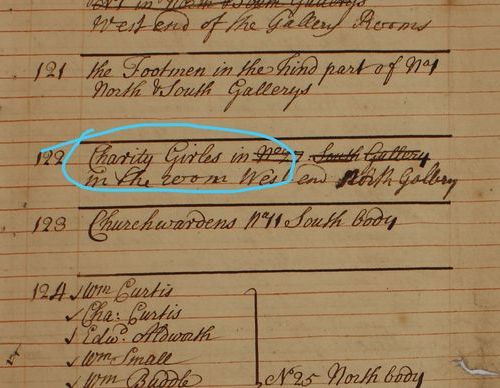 West end of the Gallery Rooms
121 the Footmen in the hind part of No 1
North & South Gallerys
122 Charity Girles in No 77 South Gallery
in the room West end North Gallery
123 Churchwardens No 11 South body
124 Wm Curtis
Cha: Curtis
Edwd. Aldworth
Wm Small
Wm Buddle
No 25 North body